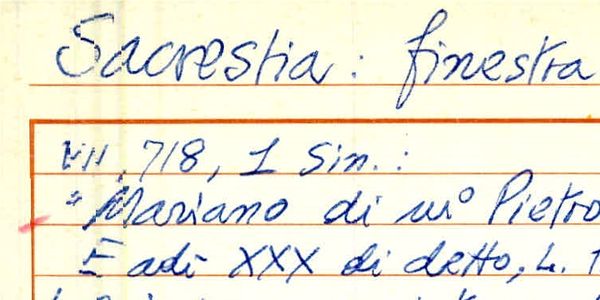 Sacrestia: finestra
VII, 718, 1 Sin.:
"Mariano di mº Pietro
E adì XXX di detto, L. 1